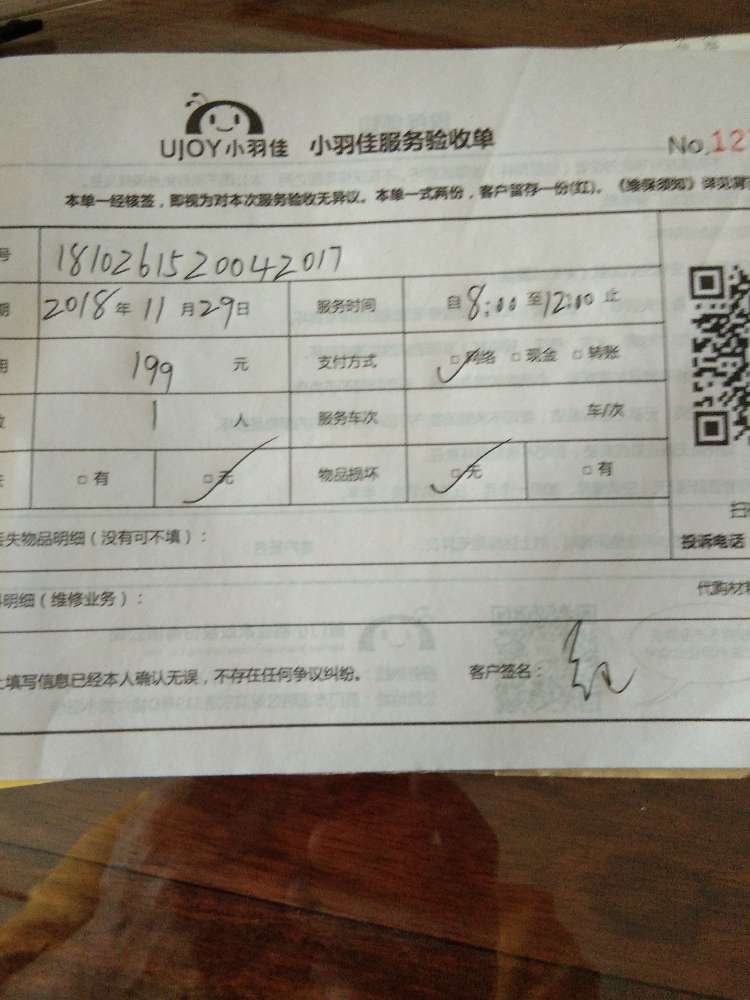 UJOY小羽佳 小羽佳服务验收单 No.12
本单一经核签，即视为对本次服务验收无异议。本单一式两份，客户留存一份(红)。《维保须知》详见背
号 1810261520042017
期 2018年11月29日 服务时间 自8:00至12:00止
用 199 元 支付方式 □网络 □现金 □转账
数 1 人 服务车次 车/次
失 □有 □无 物品损坏 □无 □有
丢失物品明细（没有可不填）：
扫
投诉电话
料明细（维修业务）： 代购材
上填写信息已经本人确认无误，不存在任何争议纠纷。 客户签名：